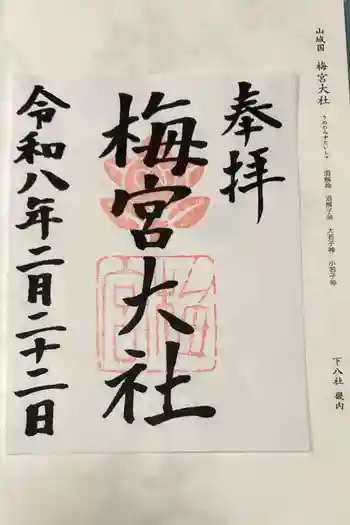 山城国 梅宮大社
うめのみやたいしゃ
酒解神 酒解子神 大若子神 小若子神
下八社 畿内
奉拝
梅宮大社
梅宮
令和八年二月二十二日